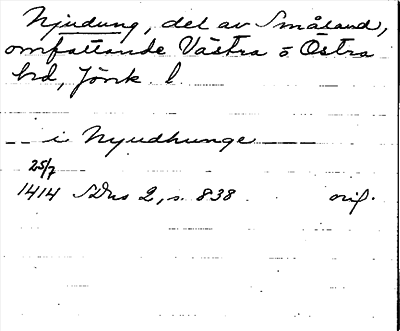 Njudung, del av Småland,
omfattande Västra o Östra
hrd, Jönk. l.
-- i Nyudhunge --
25/7
1414 SDns 2, s. 838 orig.